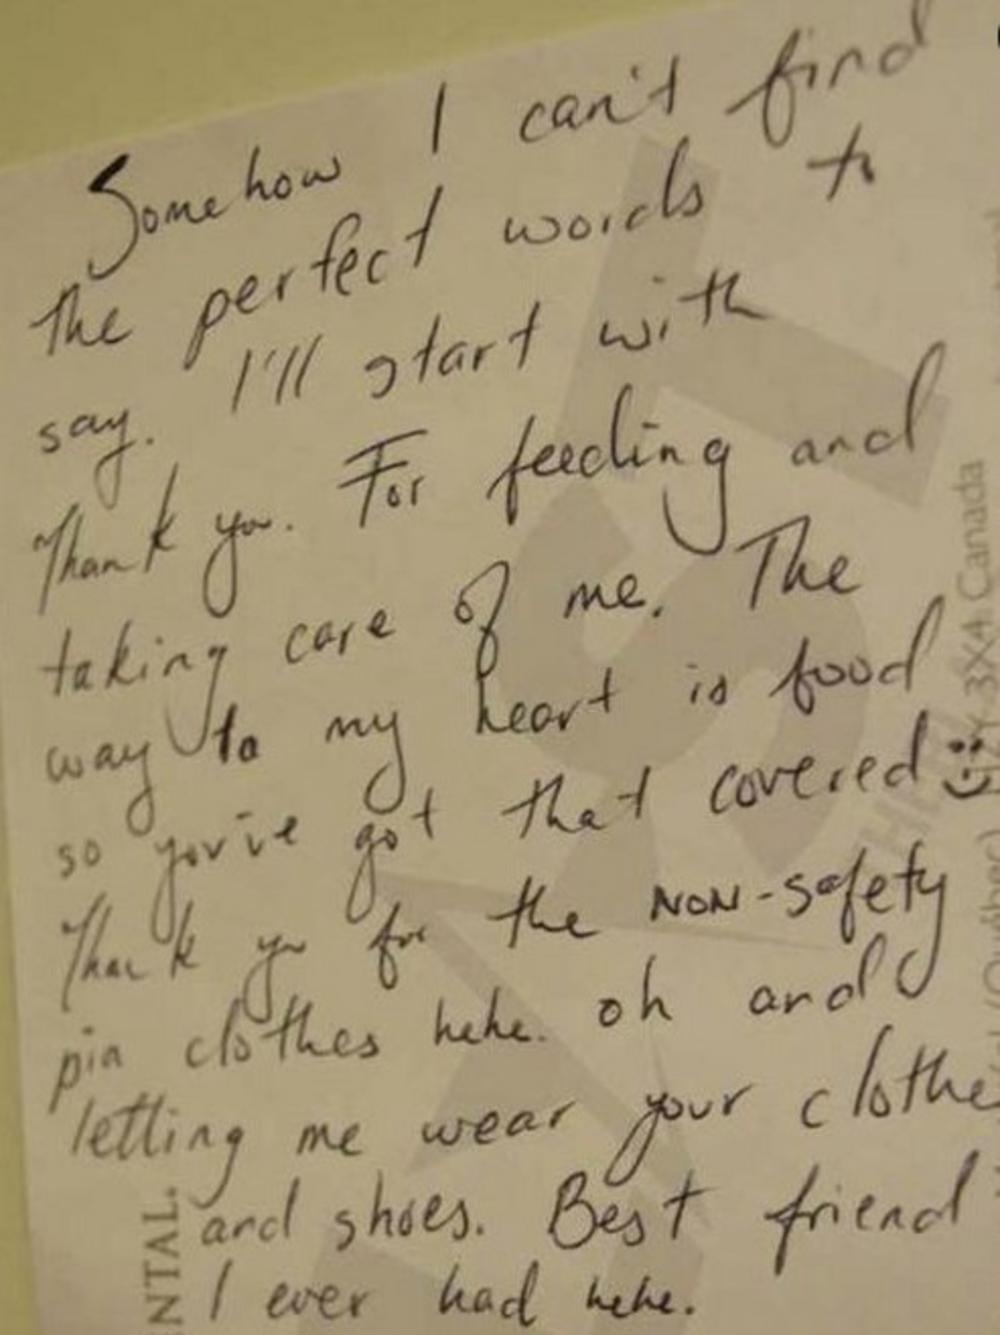 Somehow I can't find
the perfect words to
say. I'll start with
Thank you. For feeding and
taking care of me. The
way to my heart is food
so you've got that covered :)
Thank you for the NON-safety
pin clothes hehe. oh and
letting me wear your clothe
and shoes. Best friend
I ever had hehe.
NTAL.
3X4 Canada